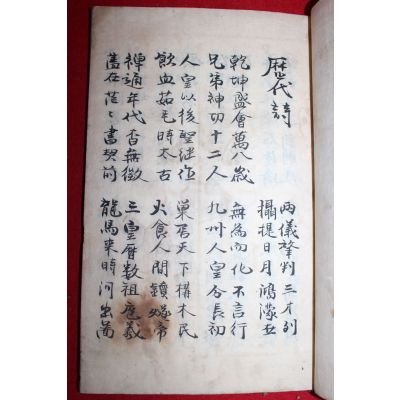 歴代詩
兩儀肇判三才列
攝提日月鴻濛丑
乾坤盛會萬八歲 無為而化不言行
兄弟神功十二人 九州人皇分長初
人皇以後聖继作 巢居天下構木民
飲血茹毛時太古 火食人間鑽燧帝
禪通年代杳無徵 三皇曆數祖庖羲
蓋在茫〻書契前 龍馬來時河出圖